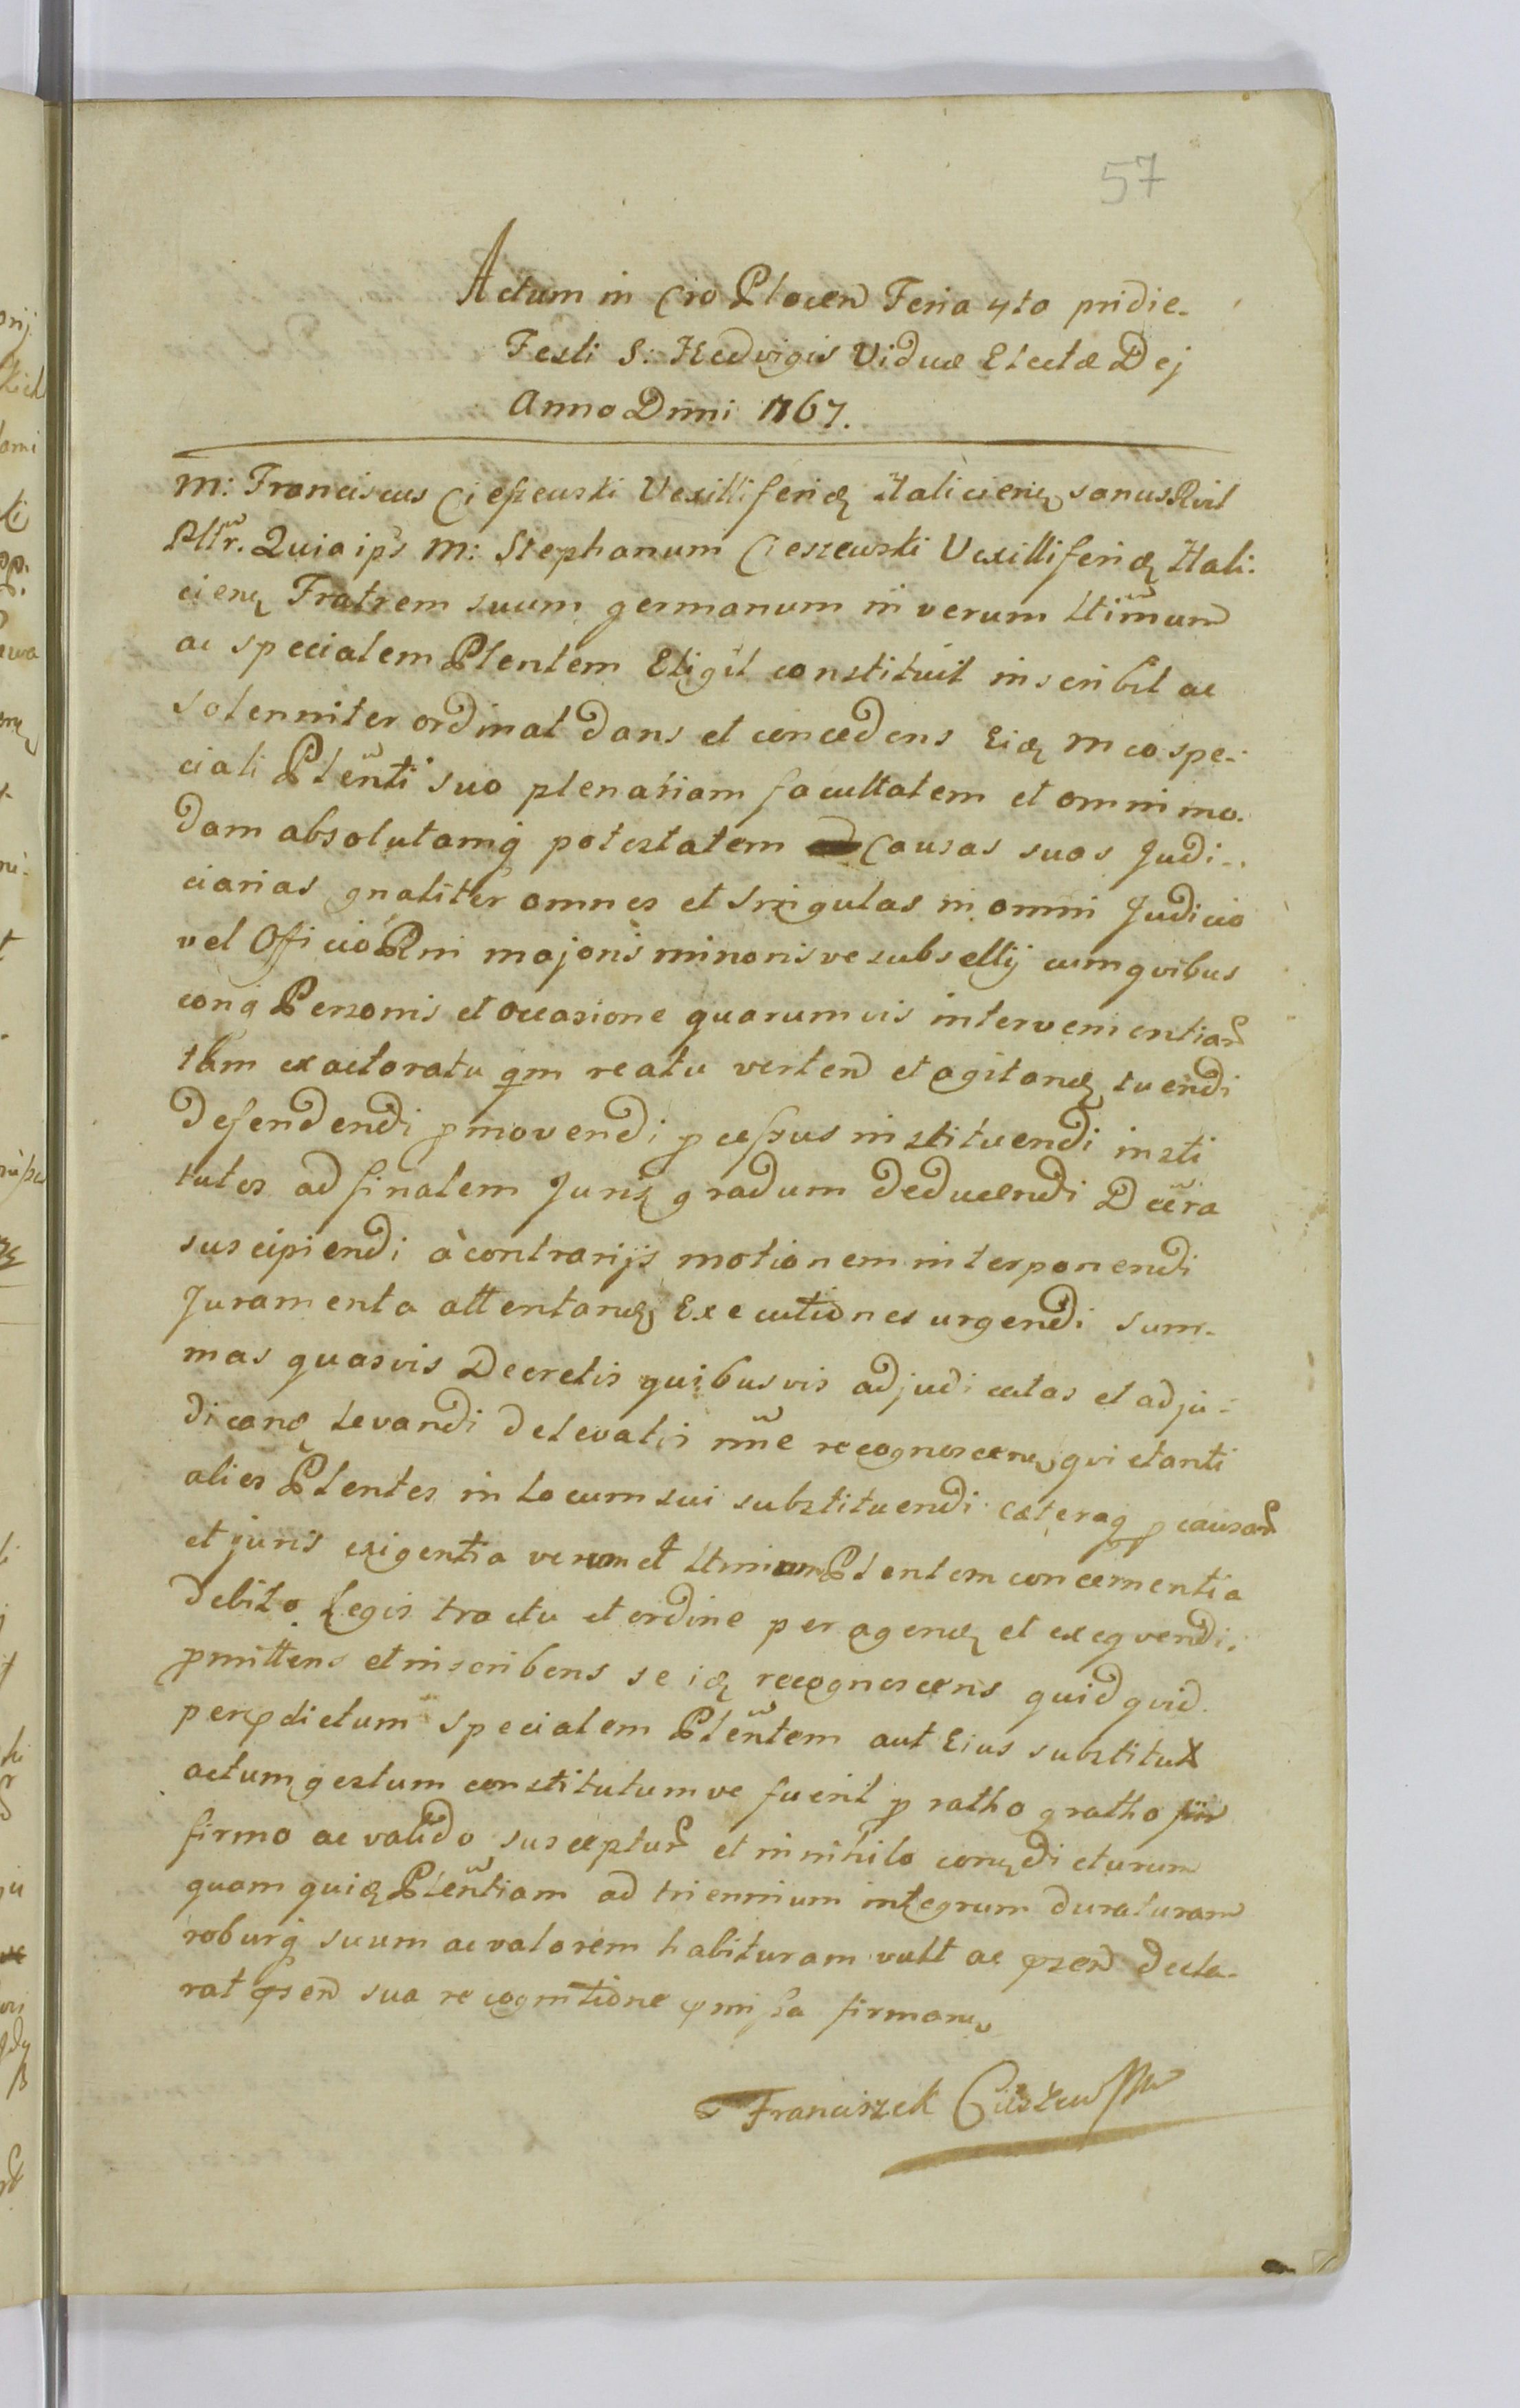 57
Actum in Cro Plocen Feria 4to pridie
Festi S: Hedvigis Viduæ Electæ Dej
Anno Dnni 1767.
M: Franciscus Cieszewski Vexilliferid Haliciens sanus
Plr. Quia ips M: Stephanum Cieszewski Vexilliferid Hali:
ciens Fratrem suum germanum in verum Ltimum
ac specialem Plentem Eligit constituit inscribit ac
solenniter ordinat dans et concedens Eid M co spe-
ciali Plenti suo plenariam facultatem et omnimo.
dam absolutamq potestatem Causas suas Judi-
ciarias gnaliter omnes et singulas in omni Judicio
vel Officio Rni majoris minorisve subsellij cumqvibus
conq Personis et occasione quarumvis intervenientiar
tam ex actoratu qm reatu verten et agitand tuendi
defendendi pmovendi pcessus instituendi insti
tutos ad finalem Juris gradum deducendi Dcera
suscipiendi à contrarijs motionem interponendi
Juramenta attentand Executiones urgendi sum-
mas quasvis Decretis quibusvis adjudicatas et adju-
dicand levandi de levatis nne recognoscend qvietandi
alios Plentes in locum sui substituendi cæteraq p causar
et juris exigentia verum et Ltimum Plentem concernentia
debito Legis tractu et ordine peragend et exeqvendi.
pmittens et inscribens se id recognoscens quidqvid
per pdictum specialem Plentem aut Eius substitut
actum gestum constitutumve fuerit p ratho gratho
firmo ac valido suscepturˀ et in nihilo contdicturum
quam quid Plentiam ad triennium integrum duraturam
roburq suum ac valorem habituram vult ac psen decla-
rat psen sua recognitione pmissa firman
Franciszek Cieszewski